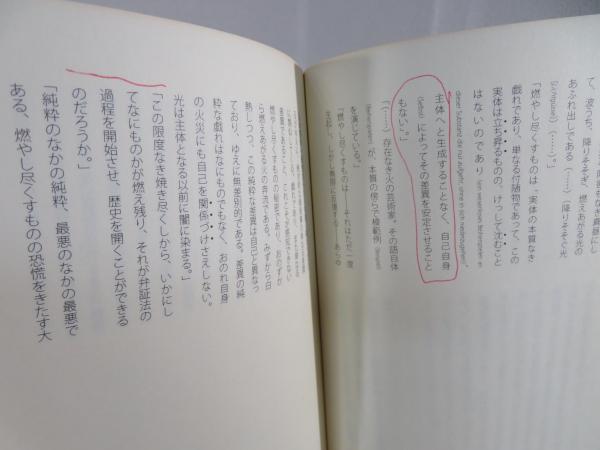 て、波うち、降りそそぎ、燃えあがる光の
あふれ出しである（……）（降りそそぐ光
(Lichtgüsse)（……）。」
「燃やし尽くすものは、「実体の本質なき
戯れであり、単なる付随物であって、この
実体は立ち昇るものの、けっして沈むこと
はないのであり
主体へと生成することなく、自己自身
(Selbst)によってその差異を安定させること
もない。」
「（……）存在なき火の芸術家。その語自体
が、本質の傍らで模範例
を演じている。」
「燃やし尽くすものは、
それはただ一度
燃やし尽くすものの秘密である。おのずか
ら燃えあがる火の奔流である。みずから白
熱しつつ、この純粋な差異は自己と異なっ
ており、ゆえに無差別的である。差異の純
粋な戯れはなにものでもなく、おのれ自身
の火災にも自己を関係づけさえしない。
光は主体となる以前に闇に染まる。」
「この限度なき焼き尽くしから、いかにし
てなにものかが燃え残り、それが弁証法の
過程を開始させ、歴史を開くことができる
のだろうか。」
「純粋のなかの純粋、最悪のなかの最悪で
ある、燃やし尽くすものの恐慌をきたす大